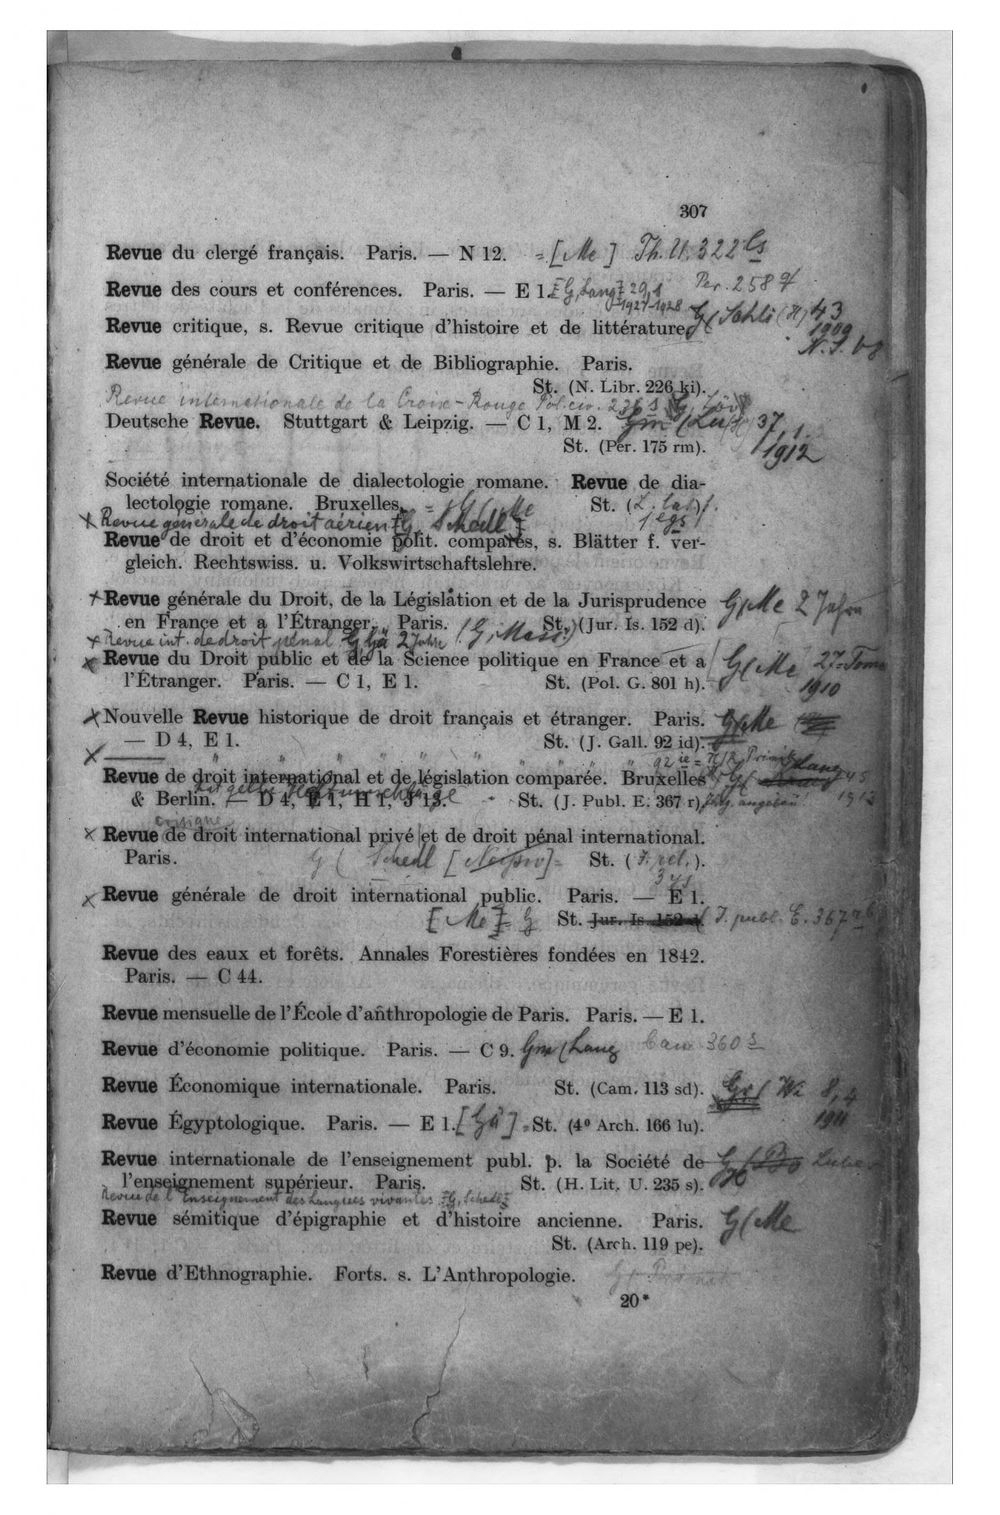 307
Revue du clergé français. Paris. — N 12. = [Me] Th. U. 322 Cs
Revue des cours et conférences. Paris. — E 1. [G, Lang] 29,1 Per. 258 q
1927-1928
Revue critique, s. Revue critique d'histoire et de littérature. G( 43
1909
Revue générale de Critique et de Bibliographie. Paris.
St. (N. Libr. 226 ki).
Revue internationale de la Croix-Rouge Pol. civ. 236 s
Deutsche Revue. Stuttgart & Leipzig. — C 1, M 2. Gm 37,1.
St. (Per. 175 rm). 1912
Société internationale de dialectologie romane. Revue de dia-
lectologie romane. Bruxelles. = G(Me St. (L. lat.).
Revue generale de droit aérien [G, Schedl]
Revue de droit et d'économie polit. comparés, s. Blätter f. ver-
gleich. Rechtswiss. u. Volkswirtschaftslehre.
Revue générale du Droit, de la Législation et de la Jurisprudence G(Me 2 Jahre
en France et a l'Étranger. Paris. St. (Jur. Is. 152 d).
Revue int. de droit pénal 2 Jahre
Revue du Droit public et de la Science politique en France et a G(Me 27. Tome
l'Étranger. Paris. — C 1, E 1. St. (Pol. G. 801 h). 1910
Nouvelle Revue historique de droit français et étranger. Paris. G(Me
— D 4, E 1. St. (J. Gall. 92 id).
Revue de droit international et de législation comparée. Bruxelles Lang 45
& Berlin. — D 4, E 1, H 1, J 13. St. (J. Publ. E. 367 r), 1913
Revue de droit international privé et de droit pénal international.
Paris. G( Schedl St. ( ).
Revue générale de droit international public. Paris. — E 1.
[Me] = G St. Jur. Is. 152 d J. publ. E. 367
Revue des eaux et forêts. Annales Forestières fondées en 1842.
Paris. — C 44.
Revue mensuelle de l'École d'anthropologie de Paris. Paris. — E 1.
Revue d'économie politique. Paris. — C 9. Gm(Lang Cam 360 s
Revue Économique internationale. Paris. St. (Cam. 113 sd). Gr( 8,4
1911
Revue Égyptologique. Paris. — E 1. [Gä] = St. (4⁰ Arch. 166 lu).
Revue internationale de l'enseignement publ. p. la Société de
l'enseignement supérieur. Paris. St. (H. Lit. U. 235 s).
Revue de l'Enseignement des Langues vivantes [G, Schedl]
Revue sémitique d'épigraphie et d'histoire ancienne. Paris. G(Me
St. (Arch. 119 pe).
Revue d'Ethnographie. Forts. s. L'Anthropologie.
20*